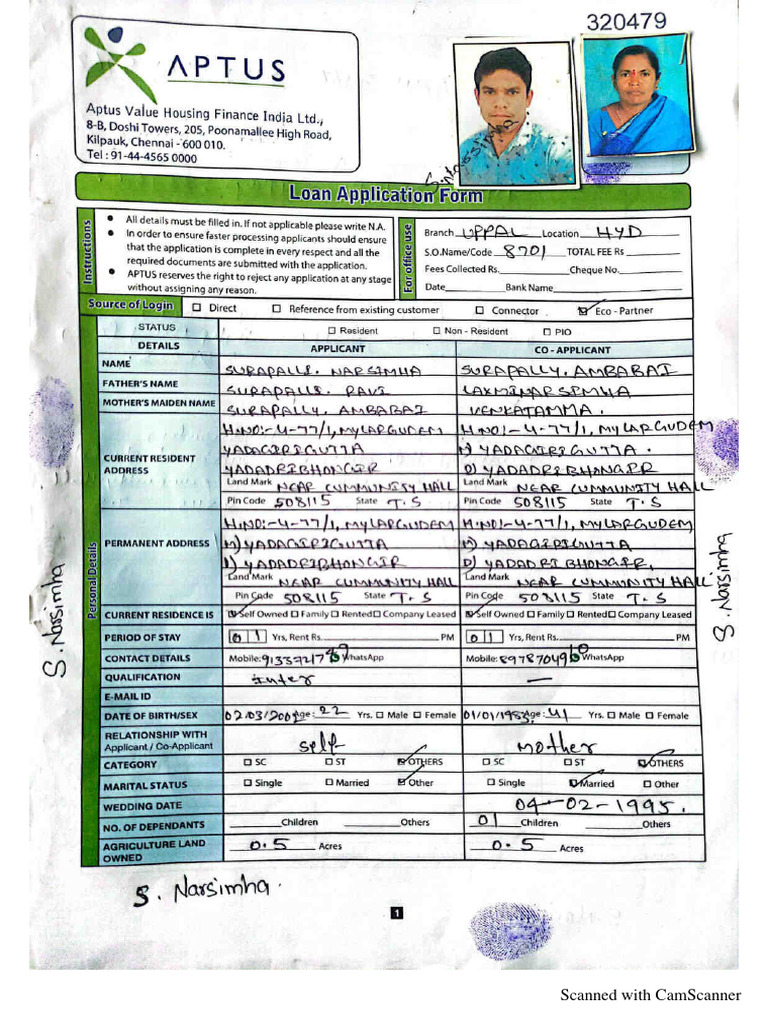 320479
APTUS
Aptus Value Housing Finance India Ltd.,
8-B, Doshi Towers, 205, Poonamallee High Road,
Kilpauk, Chennai - 600 010.
Tel : 91-44-4565 0000
S. Narsimha
Loan Application Form
Instructions
• All details must be filled in. If not applicable please write N.A.
• In order to ensure faster processing applicants should ensure
that the application is complete in every respect and all the
required documents are submitted with the application.
• APTUS reserves the right to reject any application at any stage
without assigning any reason.
For office use
Branch UPPAL Location HYD
S.O.Name/Code 8701 TOTAL FEE Rs
Fees Collected Rs. Cheque No.
Date Bank Name
Source of Login ☐ Direct ☐ Reference from existing customer ☐ Connector ☑ Eco - Partner
Personal Details
STATUS ☐ Resident ☐ Non - Resident ☐ PIO
DETAILS APPLICANT CO - APPLICANT
NAME SURAPALLI. NARSIMHA SURAPALLY. AMBABAI
FATHER'S NAME SURAPALLI. RAVI LAXMINARSIMHA
MOTHER'S MAIDEN NAME SURAPALLY. AMBABAI VENKATAMMA.
CURRENT RESIDENT ADDRESS H.NO:-4-77/1, MYLARGUDEM H.NO:-4-77/1, MYLARGUDEM
YADAGIRIGUTTA M) YADAGIRIGUTTA.
YADADRIBHONGIR D) YADADRIBHONGIR
Land Mark NEAR CUMMUNITY HALL Land Mark NEAR CUMMUNITY HALL
Pin Code 508115 State T.S Pin Code 508115 State T.S
PERMANENT ADDRESS H.NO:-4-77/1, MYLARGUDEM H.NO:-4-77/1, MYLARGUDEM
M) YADAGIRIGUTTA M) YADAGIRIGUTTA
D) YADADRIBHONGIR D) YADADRIBHONGIR,
Land Mark NEAR CUMMUNITY HALL Land Mark NEAR CUMMUNITY HALL
Pin Code 508115 State T.S Pin Code 508115 State T.S
CURRENT RESIDENCE IS ☑ Self Owned ☐ Family ☐ Rented ☐ Company Leased ☑ Self Owned ☐ Family ☐ Rented ☐ Company Leased
PERIOD OF STAY 01 Yrs, Rent Rs. PM 01 Yrs, Rent Rs. PM
CONTACT DETAILS Mobile: WhatsApp Mobile: WhatsApp
QUALIFICATION inter —
E-MAIL ID
DATE OF BIRTH/SEX 02/03/2001 Age: 22 Yrs. ☐ Male ☐ Female 01/01/1983 Age: 41 Yrs. ☐ Male ☐ Female
RELATIONSHIP WITH Applicant / Co-Applicant self mother
CATEGORY ☐ SC ☐ ST ☑ OTHERS ☐ SC ☐ ST ☑ OTHERS
MARITAL STATUS ☐ Single ☐ Married ☑ Other ☐ Single ☑ Married ☐ Other
WEDDING DATE 04-02-1995.
NO. OF DEPENDANTS Children Others 01 Children Others
AGRICULTURE LAND OWNED 0.5 Acres 0.5 Acres
S. Narsimha
S. Narsimha
S. Narsimha.
1
Scanned with CamScanner